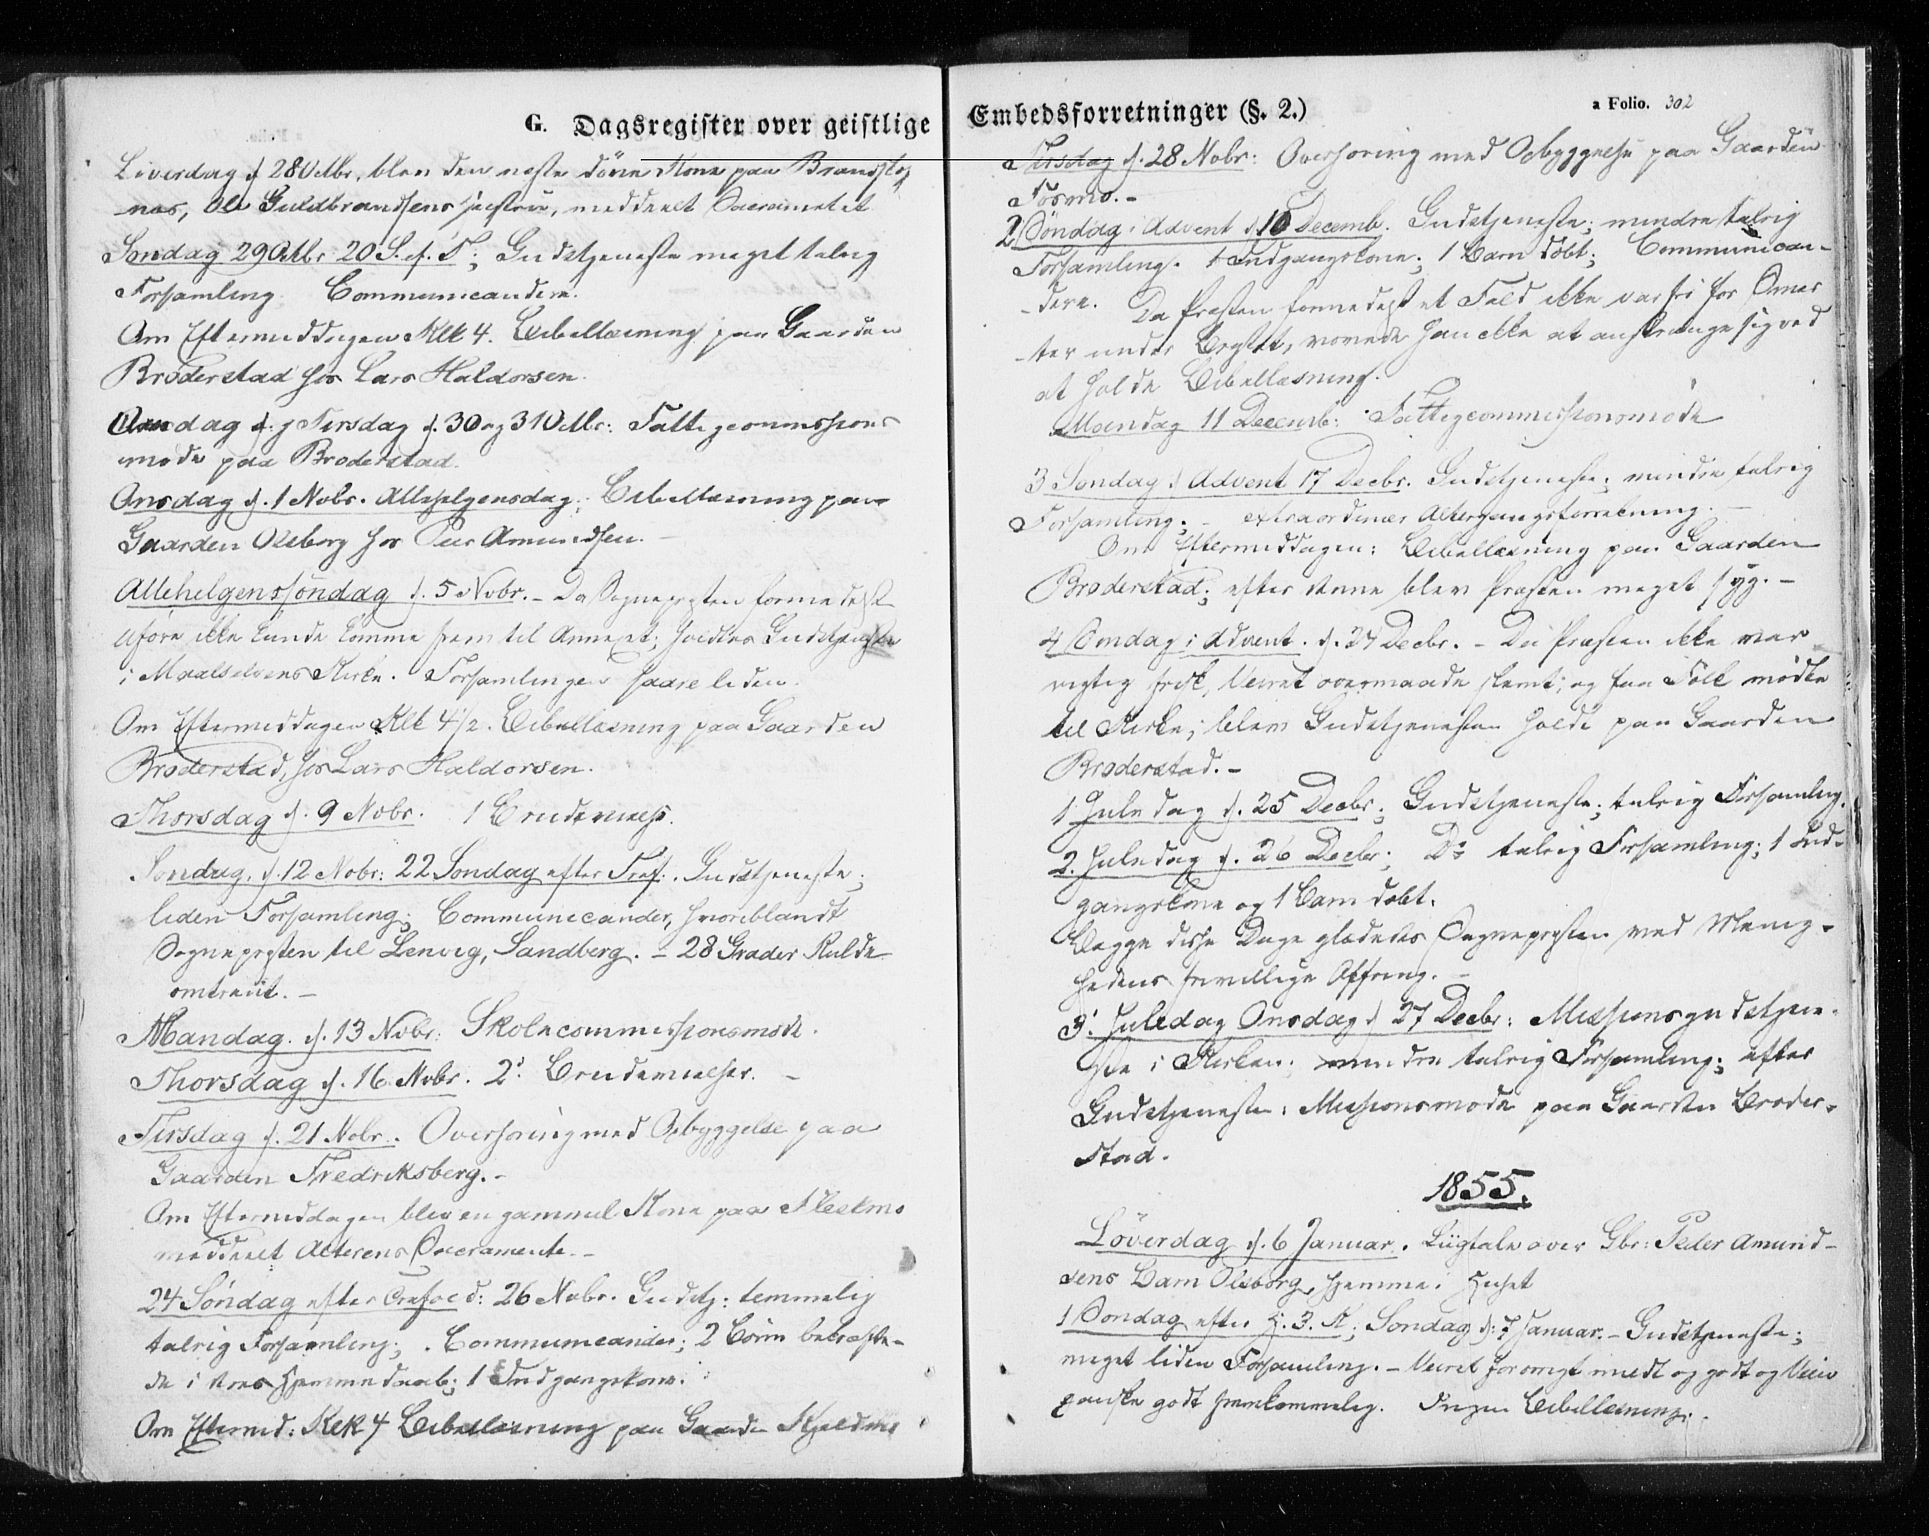 G. Dagsregister over geistlige
Löverdag d 28 Octbr. blev den næste döve Kone paa Brandskog
næs, Ole Guldbrandsens Hustrue, meddeelt Sacramentet
Sondag 29 Octbr 20 S. ef. T.; Gudstjeneste meget talrig
Forsamling. Communicandere.
Om Eftermiddagen Klk 4. Bibellæsning paa Gaarden
Broderstad hos Lars Haldorsen.
Mandag d. og Tirsdag d. 30 og 31 Octbr: Fattigcommissions
møde paa Broderstad.
Onsdag d. 1 Nobr. Allehelgensdag; Bibellæsning paa
Gaarden Olsborg hos Peder Amundsen. -
Allehelgenssöndag d. 5 Nobr. - Da Sognepræsten formedelst
Uföre ikke kunde komme frem til Annexet; holdtes Gudstjenesten
i Maalselvens Kirke. Forsamlingen saare liden.
Om Eftermiddagen Klk 4 1/2. Bibellæsning paa Gaarden
Broderstad, hos Lars Haldorsen.
Thorsdag d. 9 Nobr. 1 Brudevielse.
Sondag d. 12 Nobr: 22 Sondag efter Tref:. Gudstjeneste;
liden Forsamling; Communicander, hvoriblandt
Sognepræsten til Lenvig, Sandberg. - 28 Grader Kulde
omtrent. -
Mandag d. 13 Nobr: Skolecommissionsmøde.
Thorsdag d. 16 Nobr. 2: Brudevielser. -
Tirsdag d. 21 Nobr. Overhøring med Opbyggelse paa
Gaarden Fredriksberg. -
Om Eftermiddagen blev en gammel Kone paa Fleskmo
meddeelt Alterens Sacramente. -
24 Söndag efter Trefoed: 26 Nobr. Gudstj: temmelig
talrig Forsamling; Communicander; 2 Börn bekræfte-
de i deres Hjemmedaab; 1 Indgangskone.
Om Eftermd: Klk 4 Bibellæsning paa Gaarden Kjeldmo
Embedsforretninger (§. 2.)
a Folio. 302
Tirsdag d. 28 Nobr: Overhøring med Opbyggelse paa Gaarden
Fosmo. -
2 Söndag i Advent d 10 Decemb. Gudstjeneste; mindre talrig
Forsamling. 1 Indgangskone; 1 Barn döbt; Communican-
dere. Da Præsten formedelst et Fald ikke var fri for Smer
ter under Brystet, vovede han ikke at anstrænge sig ved
at holde Bibellæsning.
Mandag 11 Decemb: Fattigcommissionsmöde
3 Sondag i Advent 17 Decbr. Gudstjeneste; mindre talrig
Forsamling; - extraordinær Altergangsforretning. -
Om Eftermiddagen: Bibellæsning paa Gaarden
Broderstad; efter denne blev Præsten meget syg. -
4 Söndag i Advent. d. 24 Decbr. - Da Præsten ikke var
rigtig frisk, Veiret overmaade slemt; og faa Folk mödte
til Kirke; blev Gudstjenesten holdt paa Gaarden
Broderstad. -
1 Juledag d. 25 Decbr; Gudstjeneste; talrig Forsamling.
2. Juledag d. 26 Decbr; Do talrig Forsamling; 1 Ind-
gangskone og 1 Barn döbt.
Begge disse Dage glædedes Sognepræsten ved Menig-
hedens frivillige Offring. -
3. Juledag Onsdag d 27 Decbr: Missionsgudstjene-
ste i Kirken; mindre talrig Forsamling; efter
Gudstjenesten: Missionsmøde paa Gaarden Broder-
stad.
1855.
Löverdag d. 6 Januar. Liigtale over Gbr: Peder Amund-
sens Barn Olsborg, hjemme i Huset
1 Söndag efter H. 3. K; Sondag d: 7 Januar. - Gudstjeneste;
meget liden Forsamling. - Veiret forövrigt mildt og godt og Veien
ganske godt fremkommelig. Ingen Bibellæsning.